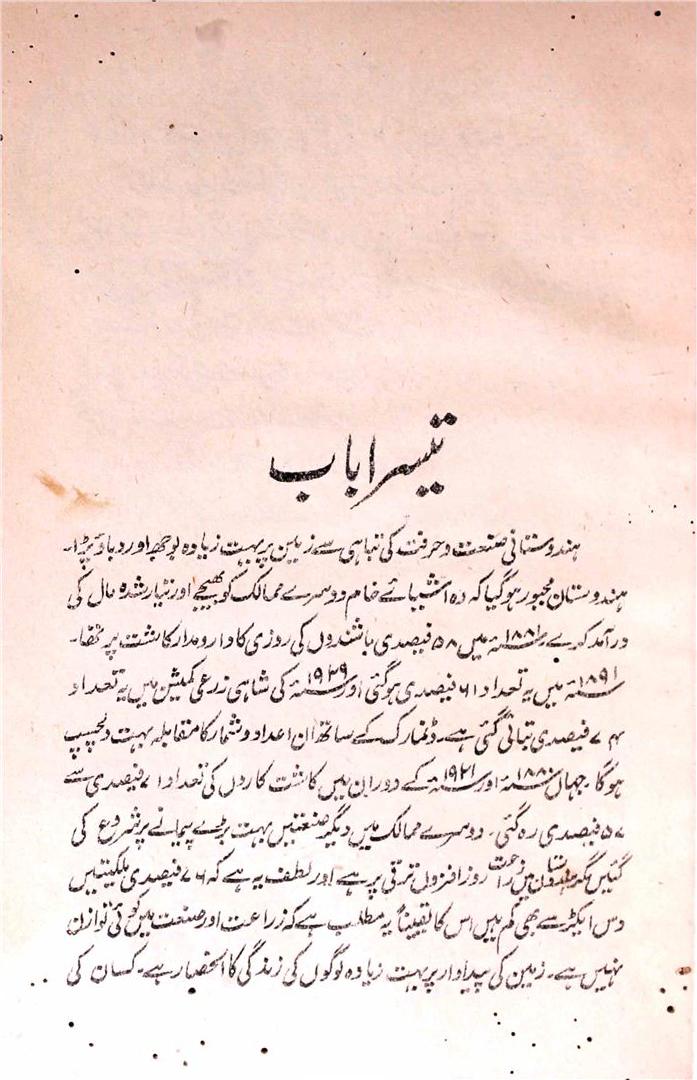 تیسرا باب
ہندوستانی صنعت و حرفت کی تباہی سے زمین پر بہت زیادہ بوجھ اور دباؤ پڑا۔
ہندوستان مجبور ہو گیا کہ وہ اشیائے خام دوسرے ممالک کو بھیجے اور تیار شدہ مال کی
درآمد کرے ۱۸۸۱ء میں ۵۸ فیصدی باشندوں کی روزی کا دارومدار کاشت پر تھا۔
۱۸۹۱ء میں یہ تعداد ۶۱ فیصدی ہو گئی اور ۱۹۳۹ء کی شاہی زرعی کمیشن میں یہ تعداد
۷۴ فیصدی بتائی گئی ہے۔ ڈنمارک کے ساتھ ان اعداد و شمار کا مقابلہ بہت دلچسپ
ہوگا۔ جہاں ۱۸۸۰ء اور ۱۹۲۱ء کے دوران میں کاشت کاروں کی تعداد ۷۱ فیصدی سے
۵۷ فیصدی رہ گئی۔ دوسرے ممالک میں دیگر صنعتیں بہت بڑے پیمانے پر شروع کی
گئیں مگر ہندوستان میں زراعت روز افزوں ترقی پر ہے اور لطف یہ ہے کہ ۷۶ فیصدی ملکیتیں
دس ایکڑ سے بھی کم ہیں اس کا یقیناً یہ مطلب ہے کہ زراعت اور صنعت میں کوئی توازن
نہیں ہے۔ زمین کی پیداوار پر بہت زیادہ لوگوں کی زندگی کا انحصار ہے۔ کسان کی